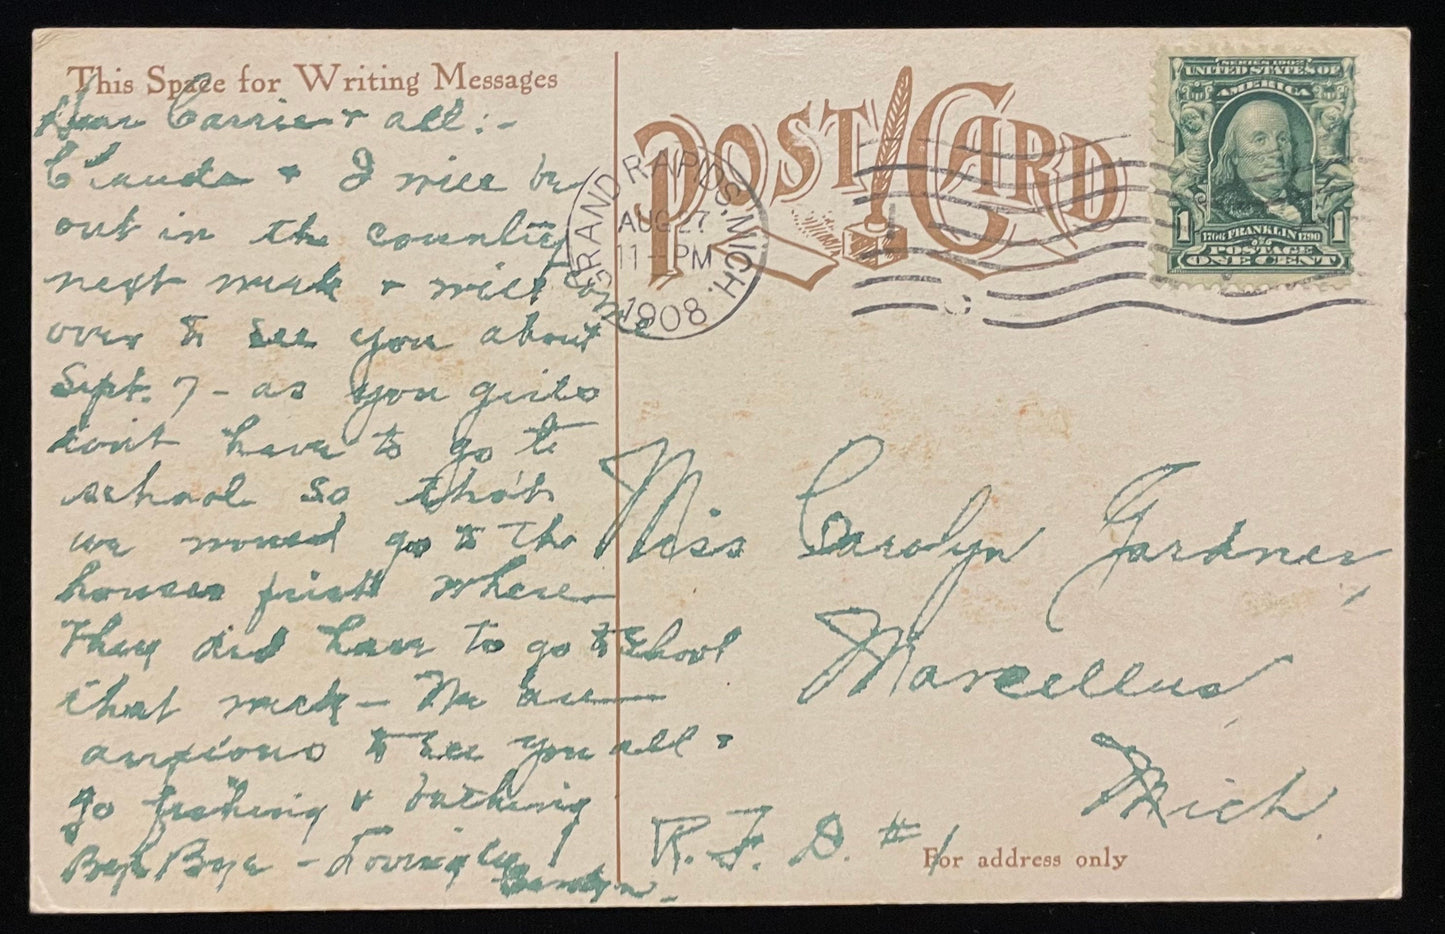 This Space for Writing Messages
Dear Carrie & all:-
Claude & I will be
out in the country
next week & will come
over to see you about
Sept. 7 - as you girls
don't have to go to
school so thot
we would go to the
houses first where
They did have to go to school
that week - We are
anxious to see you all &
go fishing & bathing
Bye Bye - Lovingly
POST CARD
GRAND RAPIDS, MICH.
AUG 27
11-PM
1908
SERIES 1902
UNITED STATES OF
AMERICA
1 1706 FRANKLIN 1790 1
POSTAGE
ONE CENT
Miss Carolyn Gardner,
Marcellus
Mich.
R. F. D. #1
For address only